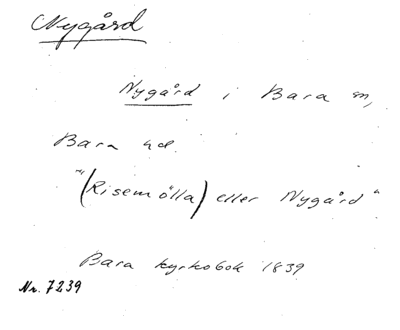 Nygård
Nygård i Bara sn,
Bara hd.
"(Risemölla) eller Nygård"
Bara kyrkobok 1839
Nr. 7239